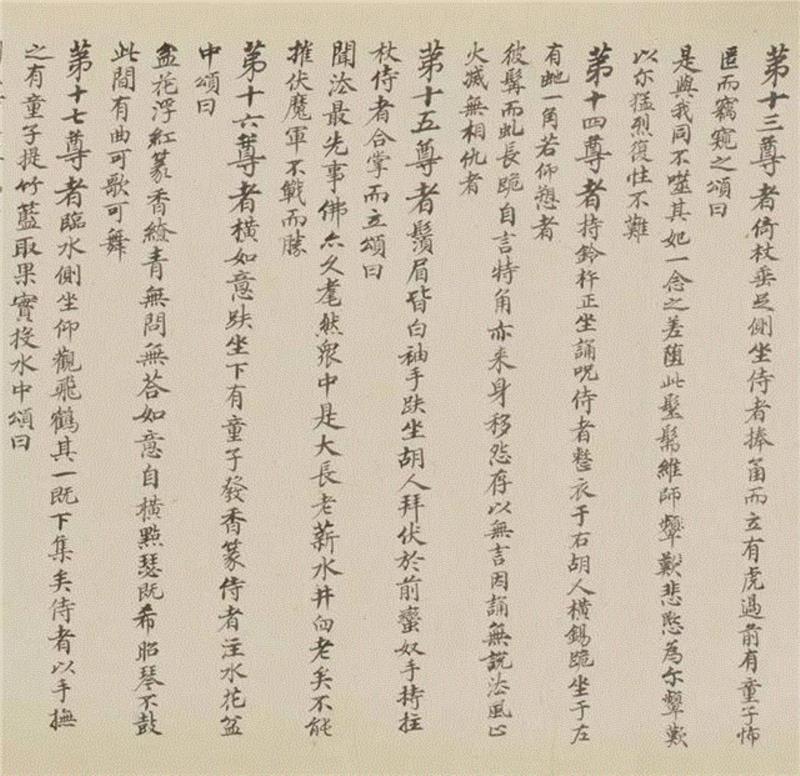 第十三尊者倚杖垂足側坐侍者捧笛而立有虎過前有童子怖
匿而竊窺之頌曰
是與我同不噬其妃一念之差墮此髬髵維師顰歎悲愍為尔顰歎
以尔猛烈復性不難
第十四尊者持鈴杵正坐誦呪侍者整衣于右胡人橫錫跪坐于左
有虵一角若仰愬者
彼髯而虬長跪自言特角亦来身移怨存以無言因誦無說法風止
火滅無相仇者
第十五尊者鬚眉皆白袖手趺坐胡人拜伏於前蠻奴手持拄
杖侍者合掌而立頌曰
聞法最先事佛亦久耄然眾中是大長老薪水井臼老矣不能
摧伏魔軍不戰而勝
第十六尊者橫如意趺坐下有童子發香篆侍者注水花盆
中頌曰
盆花浮紅篆香繚青無問無荅如意自橫點瑟既希昭琴不鼓
此間有曲可歌可舞
第十七尊者臨水側坐仰觀飛鶴其一既下集矣侍者以手撫
之有童子提竹籃取果實投水中頌曰